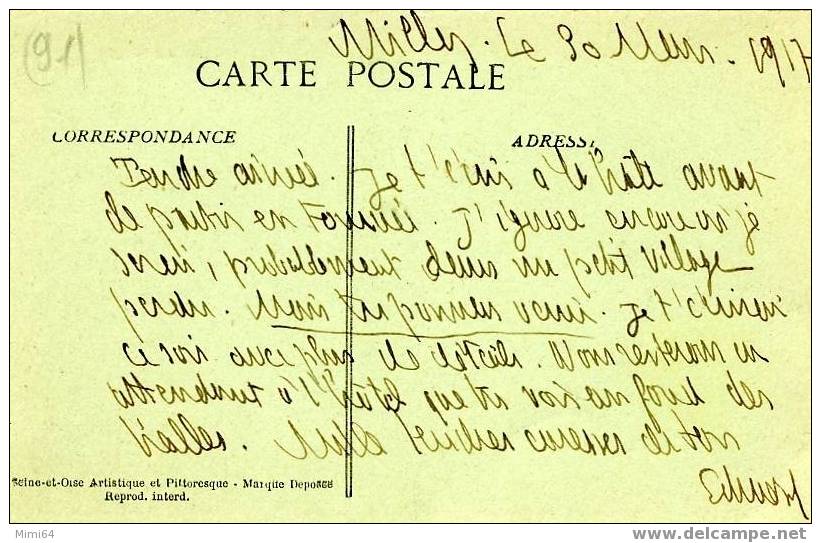 (91)
Milly. Le 30 Mars. 1917
CARTE POSTALE
CORRESPONDANCE
ADRESSE
Tendre aimée. Je t'écris à la hâte avant
de partir en tournée. J'ignore encore où je
serai, probablement dans un petit village
perdu. Mais tu pourras venir. Je t'écrirai
ce soir avec plus de détails. Nous resterons en
attendant à l'hôtel que tu vois au fond des
Halles. Mille tendres caresses de ton
Seine-et-Oise Artistique et Pittoresque - Marque Deposée
Reprod. interd.
Mimi64
www.delcampe.net